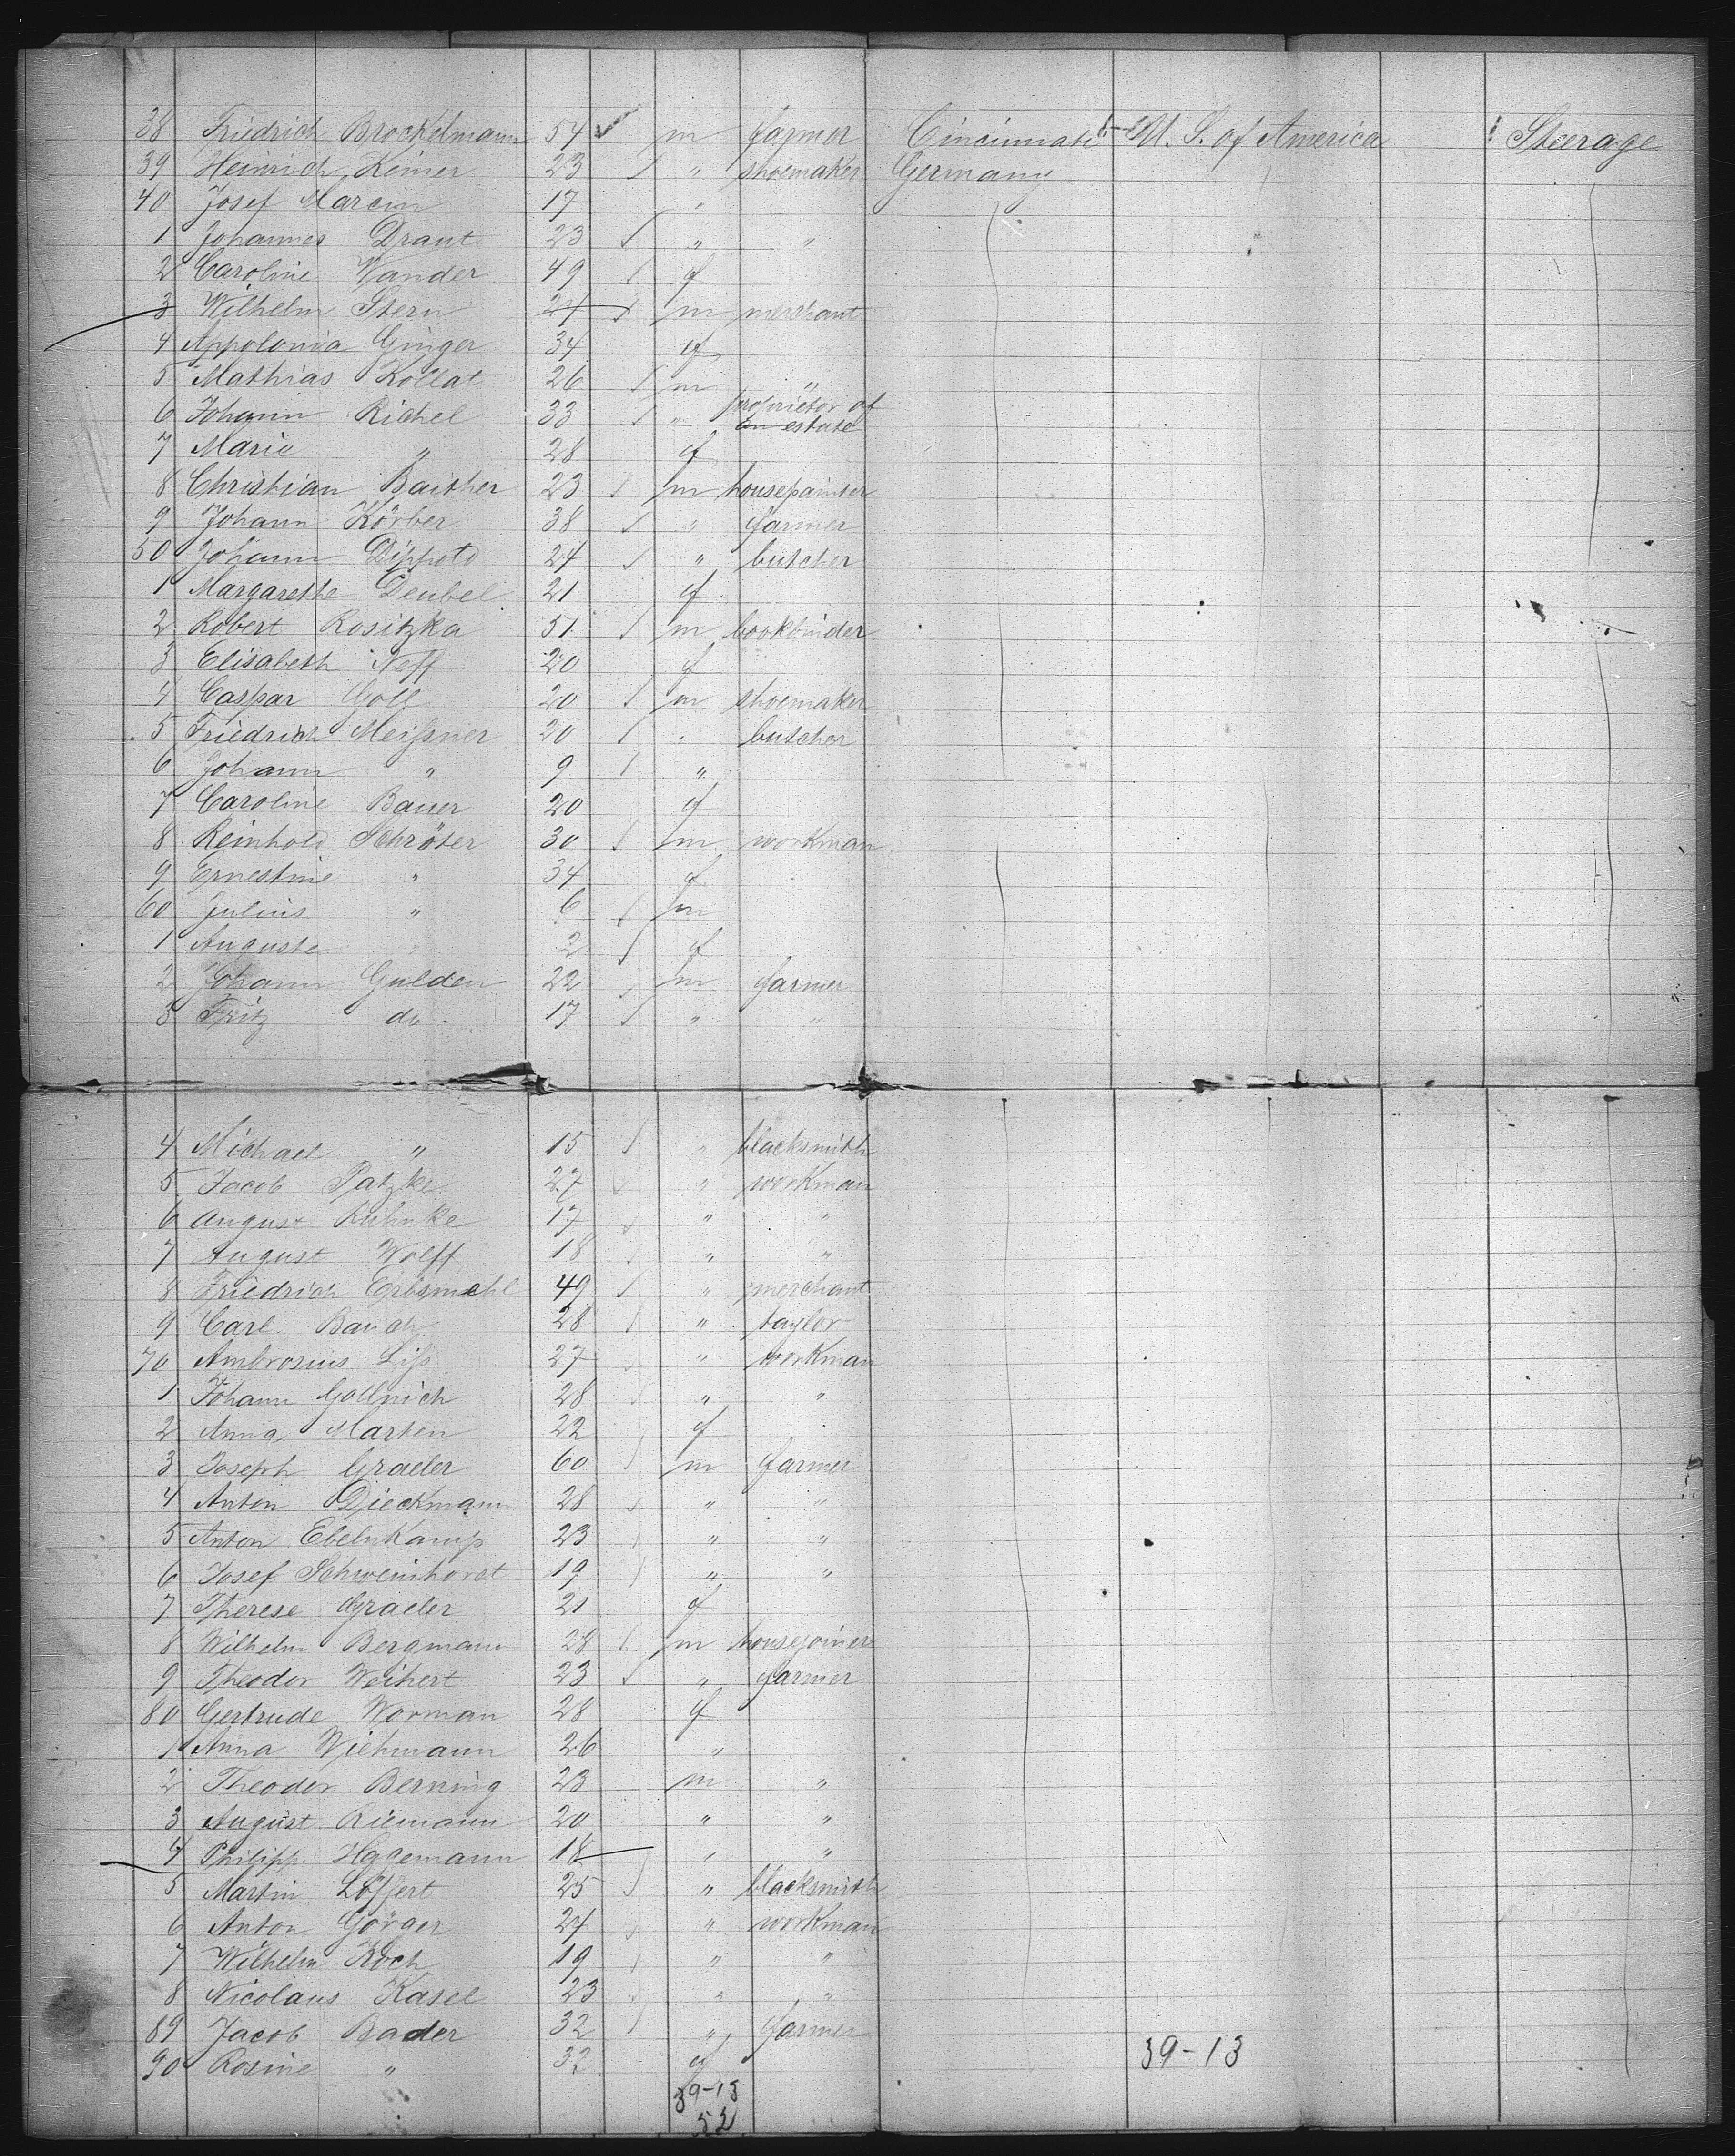 38 Friedrich Brockelmann 54 m farmer Cincinnati U. S. of America Steerage
39 Heinrich 23 " shoemaker Germany
40 Josef 17 "
1 Johannes Draut 23 " "
2 Caroline Wander 49 f
3 Wilhelm Stern m merchant
4 Appolonia Ginger 34 f
5 Mathias Kollat 26 m "
6 Johann Richel 33 " proprietor of an estate
7 Marie " 28 f
8 Christian Baither 23 m housepainter
9 Johann Körber 38 " farmer
50 Johann Dippold 24 " butcher
1 Margarethe Deubel 21 f
2 Robert Rositzka 51 m bookbinder
3 Elisabeth Neff 20 f
4 Caspar Goll 20 m shoemaker
5 Friedrich Meißner 20 " butcher
6 Johann " 9 "
7 Caroline Bauer 20 f
8 Reinhold Schröter 30 m workman
9 Ernestine " 34 f
60 Julius " 6 m
1 Auguste " 2 f
2 Johann Gulden 22 m farmer
3 Fritz do. 17 " "
4 Michael " 15 " blacksmith
5 Jacob Patzke 27 " workman
6 August Kuhnke 17 " "
7 August Wolff 18 " "
8 Friedrich 49 " merchant
9 Carl 28 " taylor
70 Ambrosius Liß 27 " workman
1 Johann Gollnich 28 " "
2 Anna Marten 22 f
3 Joseph Graeler 60 m farmer
4 Anton Dieckmann 28 " "
5 Anton Ebelnkamp 23 " "
6 Josef Schweinhorst 19 " "
7 Therese Graeler 21 f
8 Wilhelm Bergmann 28 m housejoiner
9 Theodor Weihert 23 " farmer
80 Gertrude Worman 28 f
1 Anna Wiehmann 26 "
2 Theodor Berning 23 m "
3 August Riemann 20 " "
4 Philipp Hagemann 18 " "
5 Martin Löffert 25 " blacksmith
6 Anton Görger 24 " workman
7 Wilhelm Koch 19 " "
8 Nicolaus Kasel 23 " "
89 Jacob Bader 32 " farmer
90 Rosine " 32 f 39-13
39-13
52